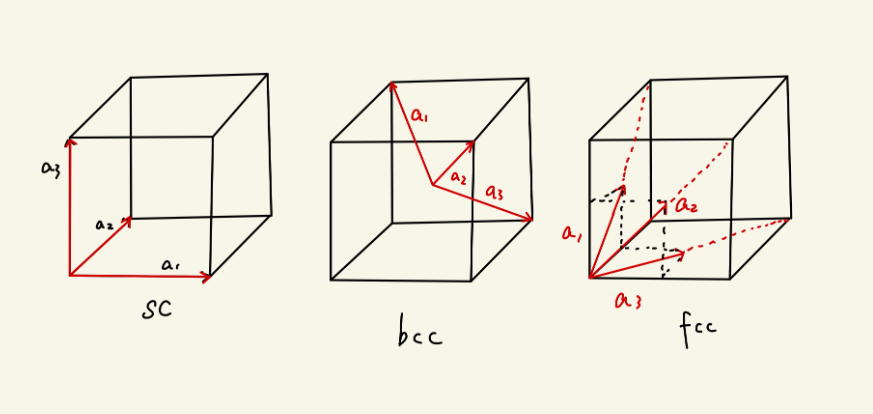 a₃
a₂
a₁
SC
a₁
a₂
a₃
bcc
a₁
a₂
a₃
fcc